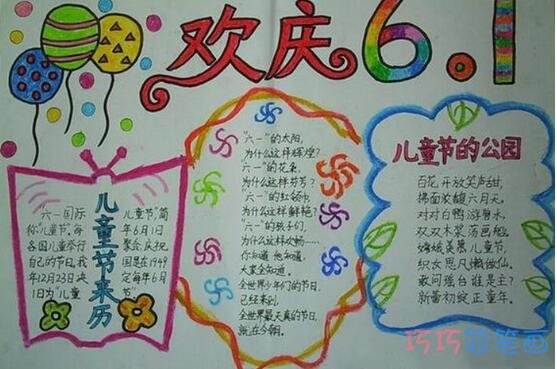 欢庆6.1
儿童节来历
六一国际
称"六一儿童节"，每
各国儿童举行
自己的节日。我
年12月23日决
1日为"儿童
儿童节"简
年6月1日
聚会，庆祝
国是在1949
定每年6月
节。
"六一"的太阳，
为什么这样辉煌？
"六一"的花朵，
为什么这样芬芳？
"六一"的虹桥，
为什么这样鲜艳？
"六一"的孩子们，
为什么这样欢畅……
你知道他知道，
大家全知道，
全世界少年们的节日，
已经来到，
全世界最天真的节日，
就在今朝。
儿童节的公园
百花开放笑声甜，
拂面浓馥六月天。
对对白鸭游碧水，
双双木桨荡画船。
嫦娥羡慕儿童节，
织女思凡懒做仙。
敢问瑶台谁是主？
新蕾初绽正童年。
巧巧简笔画